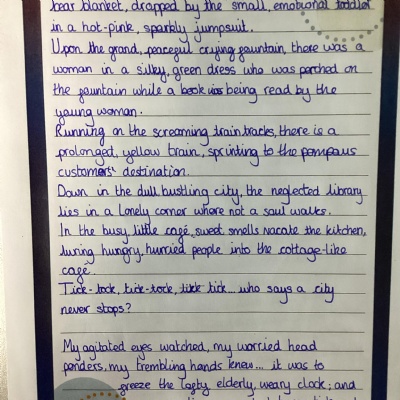 bear blanket, dropped by the small, emotional toddler
in a hot-pink, sparkly jumpsuit.
Upon the grand, peaceful crying fountain, there was a
woman in a silky, green dress who was perched on
the fountain while a book was being read by the
young woman.
Running on the screaming train tracks, there is a
prolonged, yellow train, sprinting to the pompous
customers' destination.
Down in the dull bustling city, the neglected library
lies in a lonely corner where not a soul walks.
In the busy, little cafe, sweet smells the kitchen,
luring hungry, hurried people into the cottage-like
cafe.
Tick-tock, tick-tock, tikk tikk... who says a city
never stops?
My agitated eyes watched, my worried head
ponders, my trembling hands knew... it was to
freeze the lofty, elderly, weary clock; and